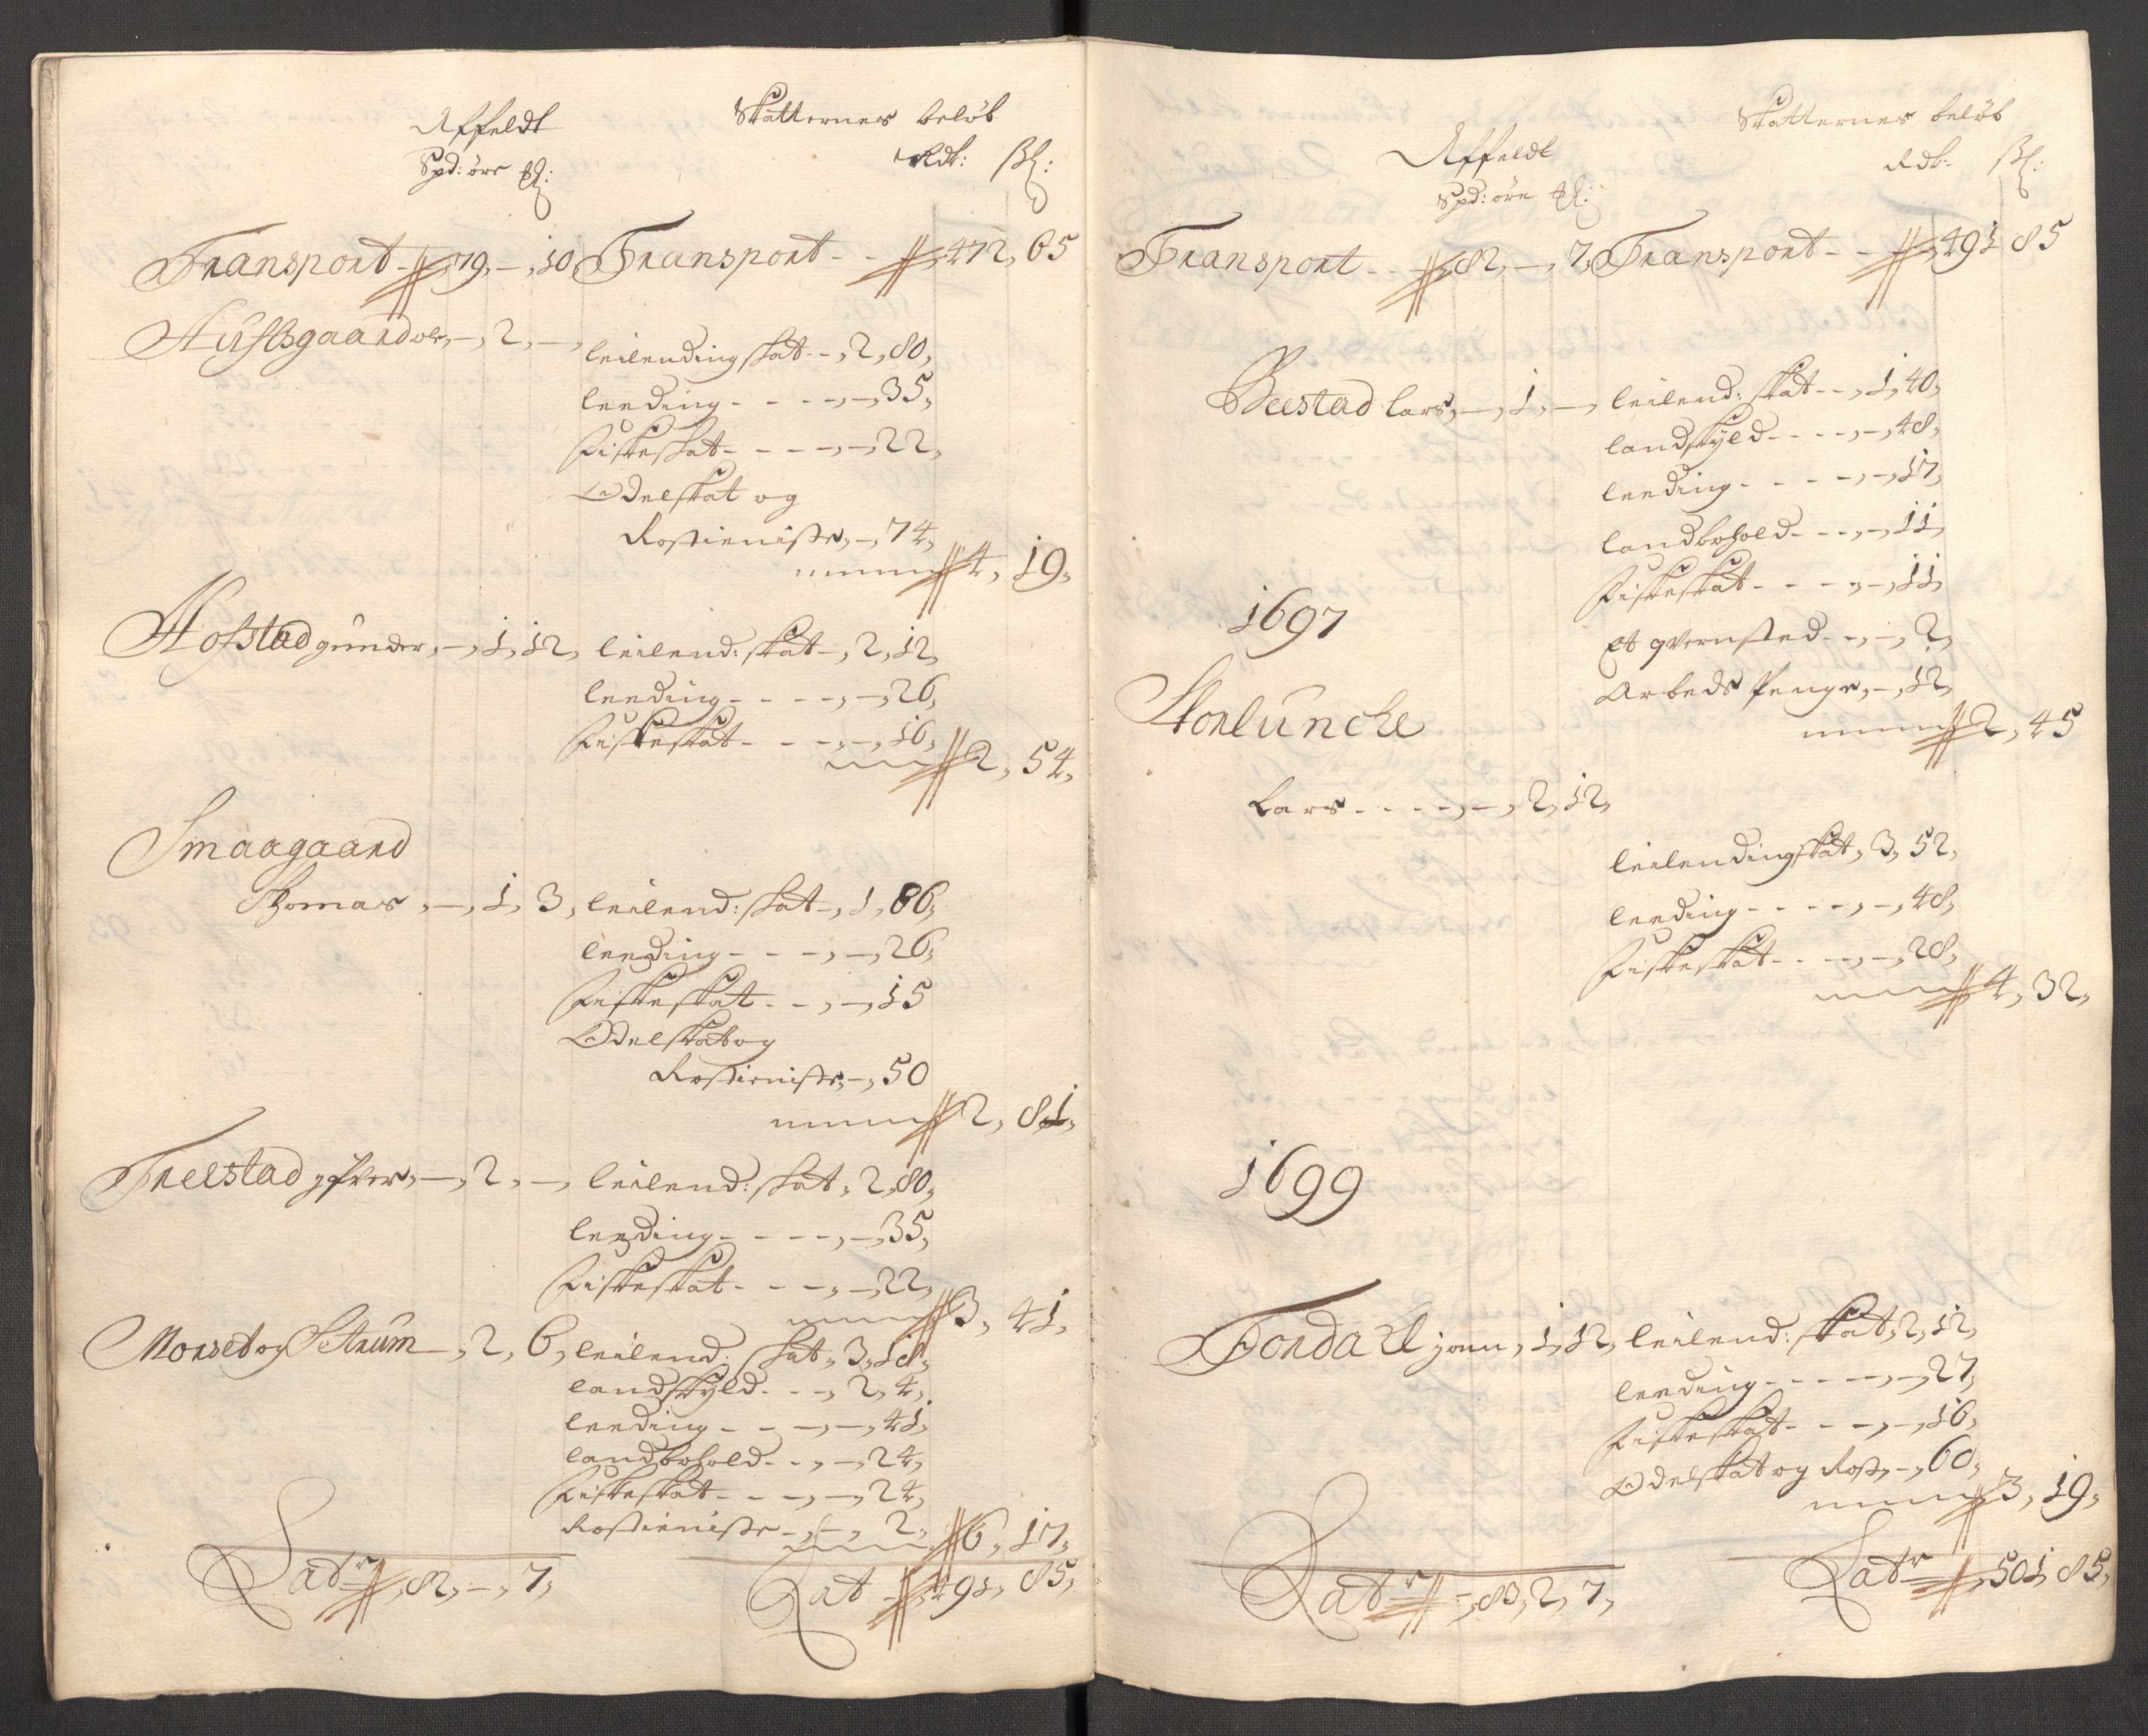 Affeldt Skatternes beløb
Spd: øre Rdr: ß:
Transport - 79, -, 10, Transport - - 472, 65
Hussbgaard ole, -, 2, -, leilending skat -, 2, 80,
leeding - - - -, -, 35,
Fiskeskat - - - -, -, 22,
Odelskat og
Rostieniste, -, 74,
4, 19,
Hofstad gunder, -, 1, 12, leilend: skat -, 2, 12,
leeding - - - -, -, 26,
Fiskeskat - - - -, -, 16,
2, 54,
Smaagaard
Thomas, -, 1, 3, leilend: skat -, 1, 86,
leeding - - - -, -, 26,
Fiskeskat - - -, -, 15
Odelskat og
Rostieniste, -, 50
2, 81,
Treestad -, 2, -, leilend: skat, 2, 80,
leeding - - - -, -, 35,
Fiskeskat - - - -, -, 22,
3, 41,
Morset og Setrum -, 2, 6, leilend: skat, 3, 18,
landskyld - - -, 2, 4,
leeding - - - -, -, 41,
landbohold - - -, -, 24,
Fiskeskat - - - -, -, 24,
Rostieniste -, -, 2, 6, 17,
Latr 82, -, 7, Lat 491, 85,
Affeldt Skatternes beløb
Spd: øre Rdr: ß:
Transport - - 82, -, 7, Transport - - 491, 85
Beestad Lars, -, 1, -, leilend: skat - -, 1, 40,
landskyld - - - -, -, 48,
leeding - - - -, -, 17,
landbohold - - -, -, 11,
Fiskeskat - - - -, -, 11,
Et qvernsted - -, -, 2,
Arbeds Penge, -, 12,
2, 45
1697
Storlunche
Lars - - - - -, -, 2, 12,
leilendingskat, 3, 52,
leeding - - - -, -, 48,
Fiskeskat - - - -, -, 28,
4, 32,
1699
Fordall joen, 1, 12, leilend: skat, 2, 12,
leeding - - - - -, -, 27,
Fiskeskat - - - -, -, 16,
Odelskat og Ros, -, 60,
3, 19,
Latr 83, 2, 7, Latr 501, 85,